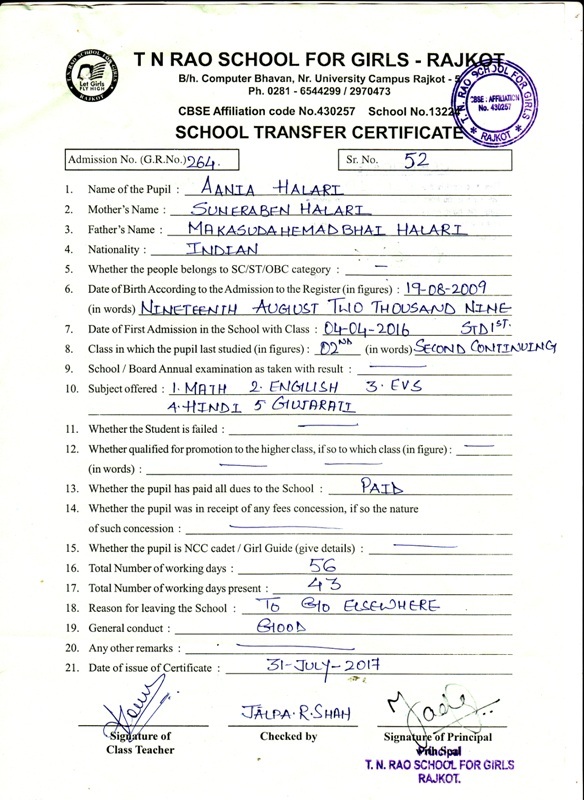 T N RAO SCHOOL FOR GIRLS - RAJKOT
B/h. Computer Bhavan, Nr. University Campus Rajkot - 5
Ph. 0281 - 6544299 / 2970473
CBSE Affiliation code No.430257 School No.1322
SCHOOL TRANSFER CERTIFICATE
T. N. RAO SCHOOL FOR GIRLS
Let Girls
FLY HIGH
RAJKOT
T. N. RAO SCHOOL FOR GIRLS
CBSE : AFFILIATION
No. 430257
★ RAJKOT ★
Admission No. (G.R.No.) 264. Sr. No. 52
1. Name of the Pupil : AANIA HALARI
2. Mother's Name : SUNERABEN HALARI
3. Father's Name : MAKASUDAHEMADBHAI HALARI
4. Nationality : INDIAN
5. Whether the people belongs to SC/ST/OBC category : —
6. Date of Birth According to the Admission to the Register (in figures) : 19-08-2009
(in words) NINETEENTH AUGUST TWO THOUSAND NINE
7. Date of First Admission in the School with Class : 04-04-2016 STD 1ST.
8. Class in which the pupil last studied (in figures) : 02ND (in words) SECOND CONTINUING
9. School / Board Annual examination as taken with result : —
10. Subject offered : 1. MATH 2. ENGLISH 3. EVS
4. HINDI 5 GUJARATI
11. Whether the Student is failed : —
12. Whether qualified for promotion to the higher class, if so to which class (in figure) : —
(in words) : — —
13. Whether the pupil has paid all dues to the School : PAID
14. Whether the pupil was in receipt of any fees concession, if so the nature
of such concession : —
15. Whether the pupil is NCC cadet / Girl Guide (give details) : —
16. Total Number of working days : 56
17. Total Number of working days present : 43
18. Reason for leaving the School : TO GO ELSEWHERE
19. General conduct : GOOD
20. Any other remarks : —
21. Date of issue of Certificate : 31-JULY-2017
JALPA.R.SHAH
Signature of Checked by Signature of Principal
Class Teacher Principal
T. N. RAO SCHOOL FOR GIRLS
RAJKOT.